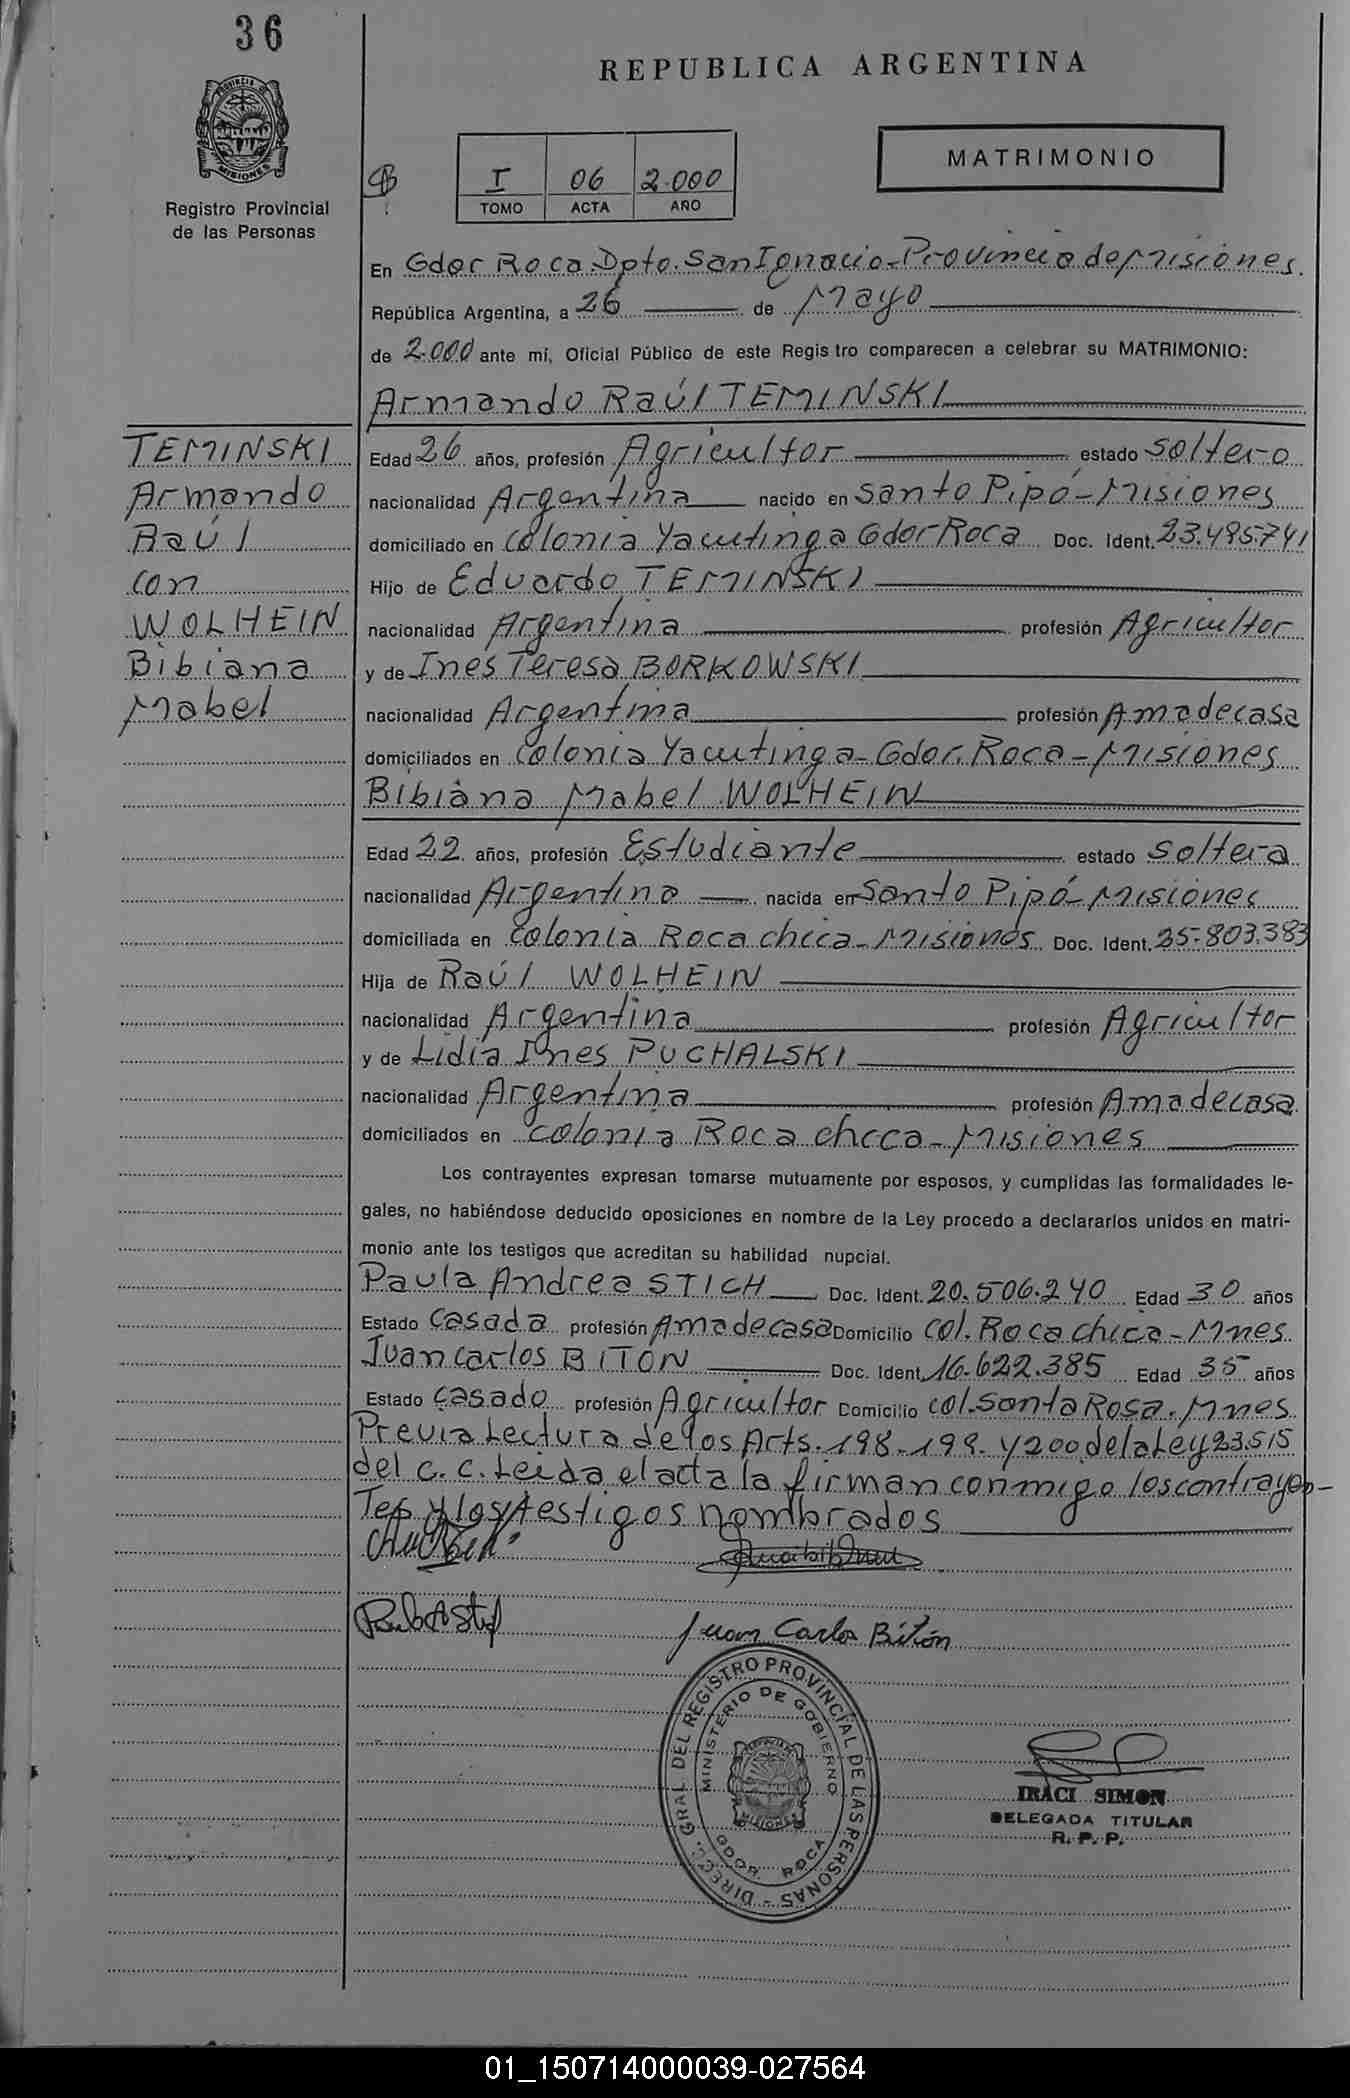 36
REPUBLICA ARGENTINA
PROVINCIA DE
MISIONES
Registro Provincial
de las Personas
MATRIMONIO
I 06 2.000
TOMO ACTA AÑO
En Gdor Roca Dpto. San Ignacio - Provincia de Misiones.
República Argentina, a 26 de Mayo
de 2.000 ante mí, Oficial Público de este Registro comparecen a celebrar su MATRIMONIO:
Armando Raúl TEMINSKI
TEMINSKI
Armando
Raúl
con
WOLHEIN
Bibiana
Mabel
Edad 26 años, profesión Agricultor estado soltero
nacionalidad Argentina nacido en Santo Pipó - Misiones
domiciliado en Colonia Yacutinga Gdor Roca Doc. Ident. 23.495.741
Hijo de Eduardo TEMINSKI
nacionalidad Argentina profesión Agricultor
y de Ines Teresa BORKOWSKI
nacionalidad Argentina profesión Ama de casa
domiciliados en Colonia Yacutinga - Gdor. Roca - Misiones
Bibiana Mabel WOLHEIN
Edad 22 años, profesión Estudiante estado soltera
nacionalidad Argentina nacida en Santo Pipó - Misiones
domiciliada en Colonia Roca chica - Misiones Doc. Ident. 25.803.383
Hija de Raúl WOLHEIN
nacionalidad Argentina profesión Agricultor
y de Lidia Ines PUCHALSKI
nacionalidad Argentina profesión Ama de casa
domiciliados en Colonia Roca chica - Misiones
Los contrayentes expresan tomarse mutuamente por esposos, y cumplidas las formalidades le-
gales, no habiéndose deducido oposiciones en nombre de la Ley procedo a declararlos unidos en matri-
monio ante los testigos que acreditan su habilidad nupcial.
Paula Andrea STICH Doc. Ident. 20.506.240 Edad 30 años
Estado Casada profesión Ama de casa Domicilio Col. Roca chica - Mnes
Juan Carlos BITÓN Doc. Ident. 16.622.385 Edad 35 años
Estado casado profesión Agricultor Domicilio Col. Santa Rosa. Mnes
Previa Lectura de los Arts. 198 - 199 - y 200 de la Ley 23.515
del C. C. Leida el acta la firman conmigo los contrayen-
tes y los testigos nombrados
Juan Carlos Bitón
DIRECC. GRAL DEL REGISTRO PROVINCIAL DE LAS PERSONAS
MINISTERIO DE GOBIERNO
MISIONES
GDOR. ROCA
IRACI SIMON
DELEGADA TITULAR
R. P. P.
01_150714000039-027564